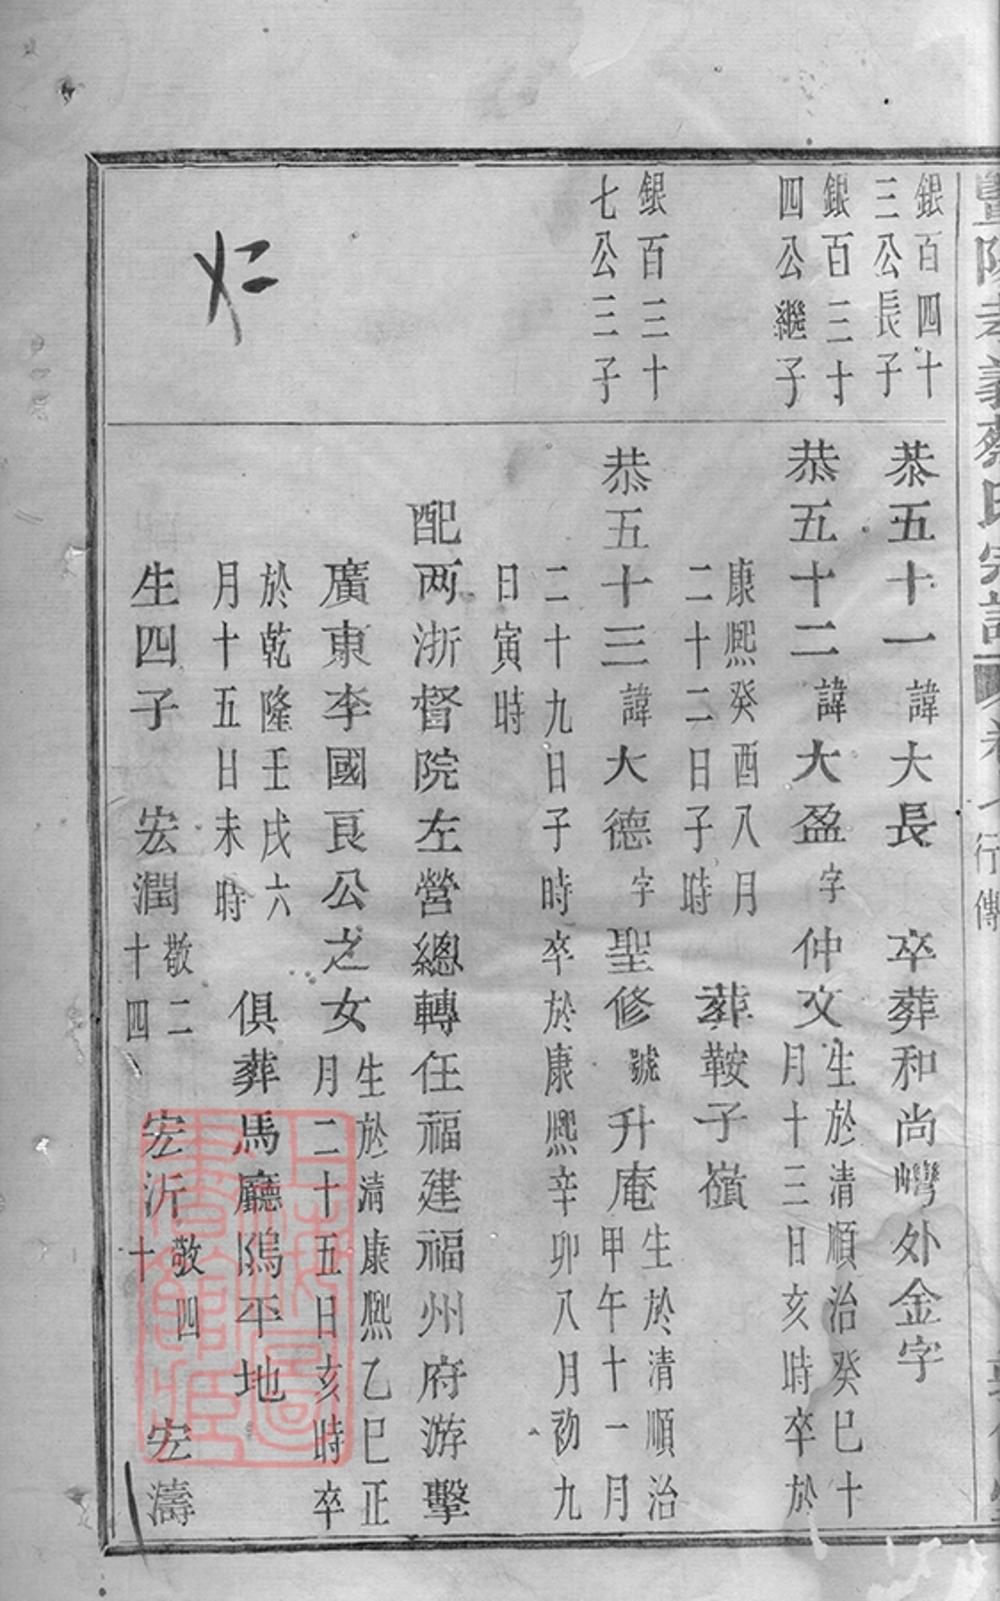 暨陽孝義蔡氏宗譜 卷 行傳
銀百四十
三公長子
恭五十一諱大長 卒葬和尚灣外金字
銀百三十
四公繼子
恭五十二諱大盈字仲文生於清順治癸巳十
月十三日亥時卒於
康熙癸酉八月
二十二日子時 葬鞍子嶺
銀百三十
七公三子
恭五十三諱大德字聖修號升庵生於清順治
甲午十一月
二十九日子時卒於康熙辛卯八月初九
日寅時
配两浙督院左營總轉任福建福州府游擊
廣東李國良公之女生於清康熙乙巳正
月二十五日亥時卒
於乾隆壬戌六
月十五日未時 俱葬馬廳隖平地
生四子 宏潤敬二
十四 宏沂敬四
十 宏濤